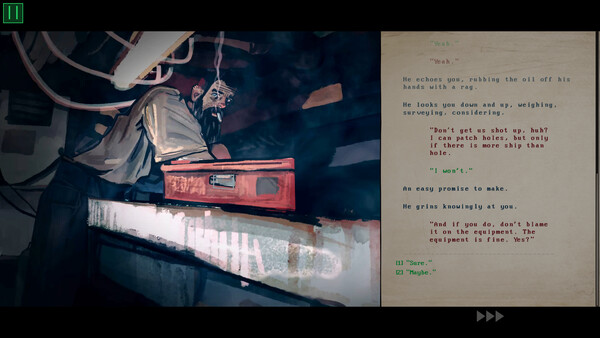 "Yeah."
"Yeah."
He echoes you, rubbing the oil off his
hands with a rag.
He looks you down and up, weighing,
surveying, considering.
"Don't get us shot up, huh?
I can patch holes, but only
if there is more ship than
hole.
"I won't."
An easy promise to make.
He grins knowingly at you.
"And if you do, don't blame
it on the equipment. The
equipment is fine. Yes?"
[1] "Sure."
[2] "Maybe."